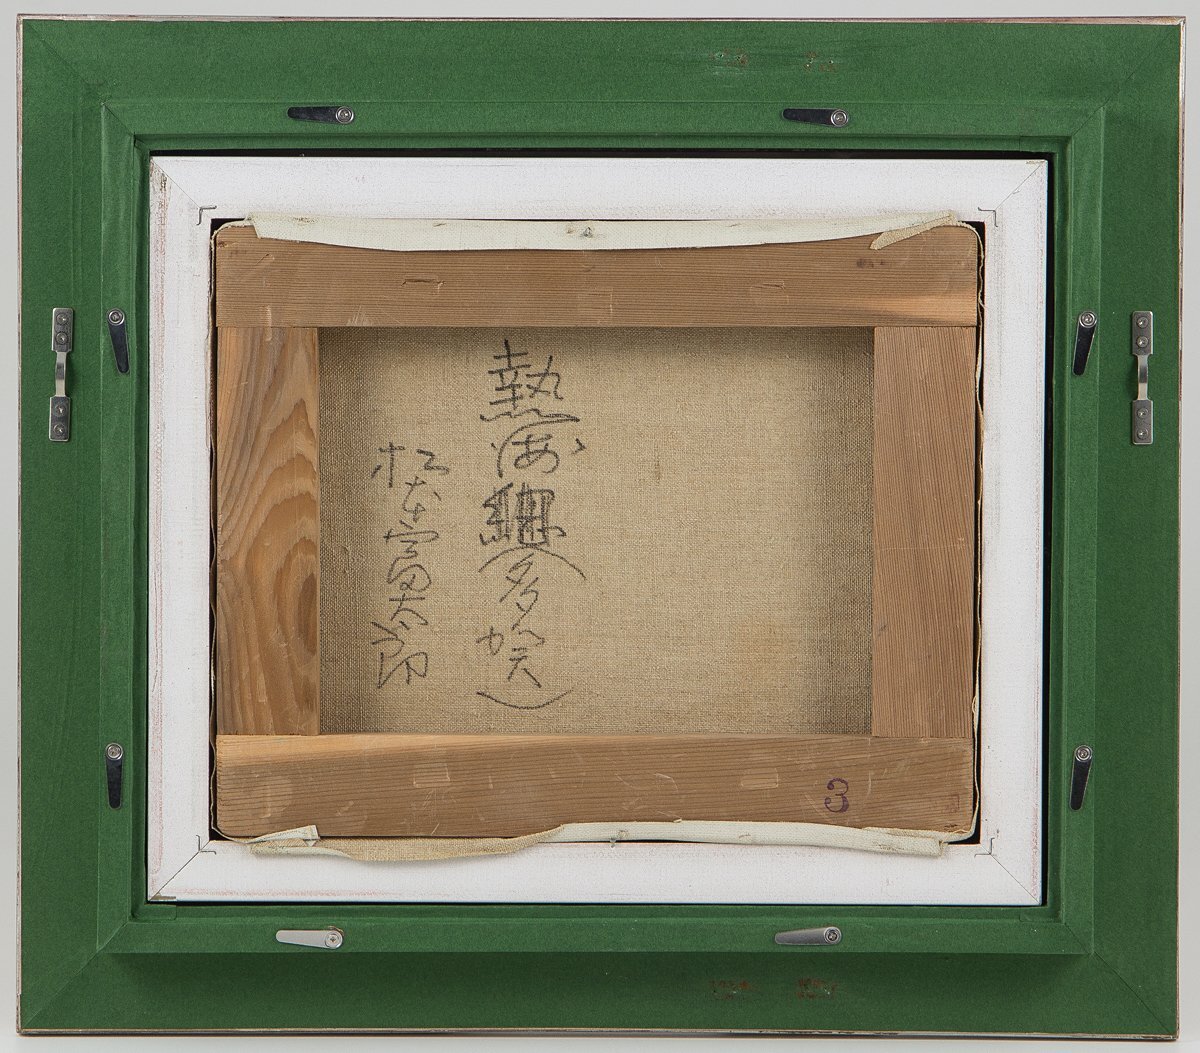 熱海(多賀)
松本富太郎
3